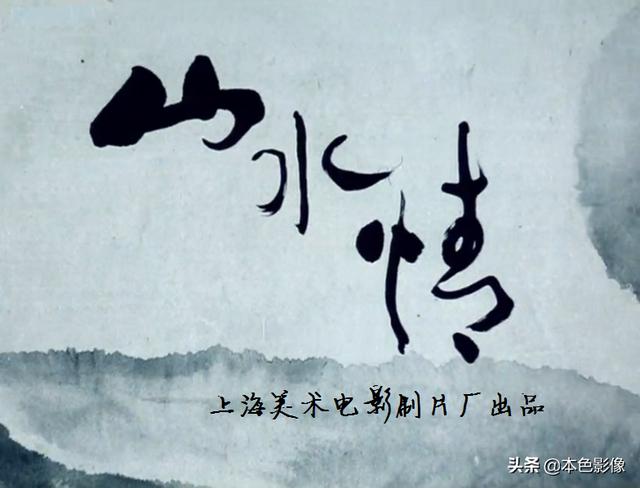 山水情
上海美术电影制片厂出品
头条 @本色影像